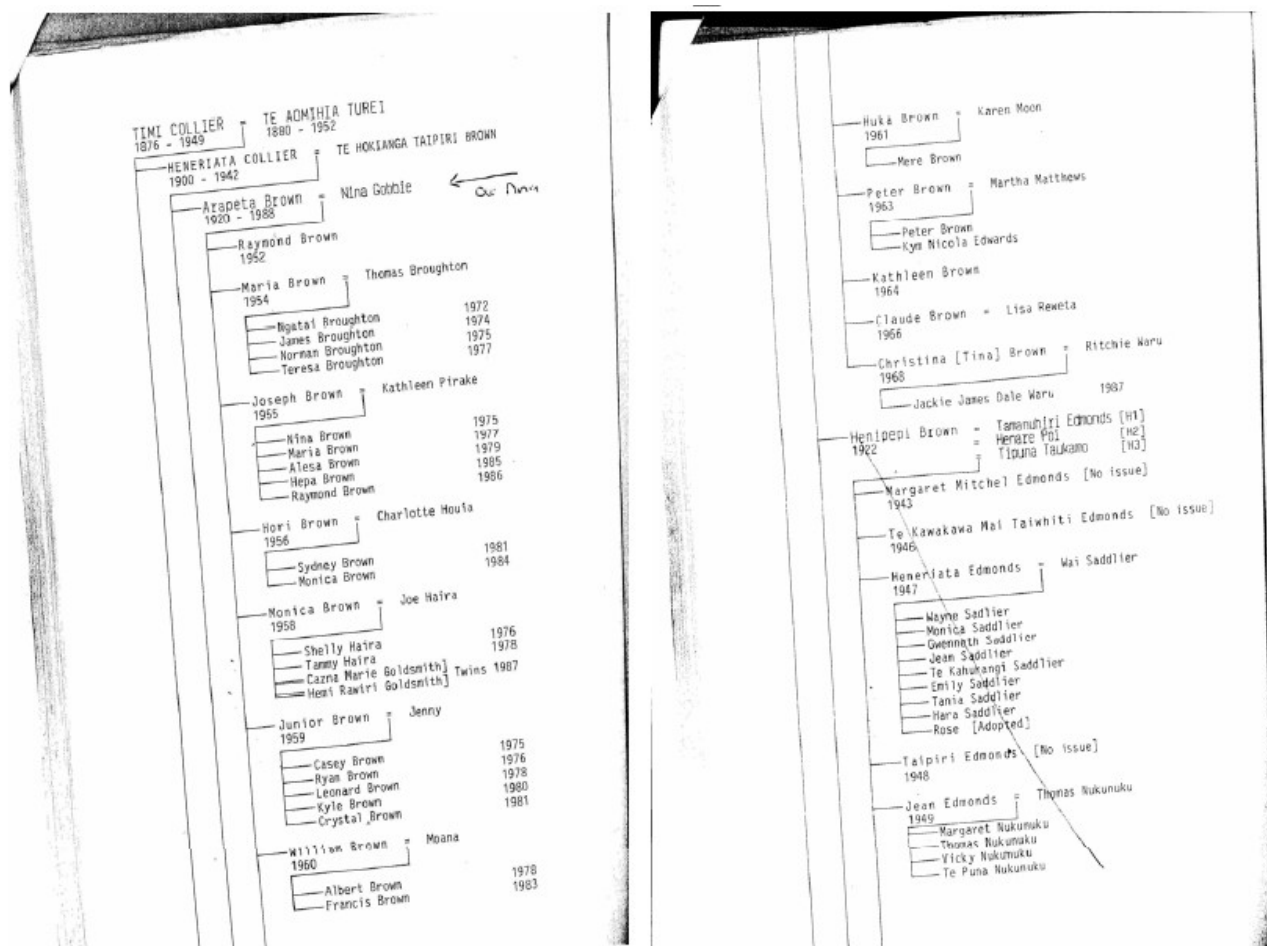 TIMI COLLIER = TE AOMIHIA TUREI
1876 - 1949 1880 - 1952
HENERIATA COLLIER = TE HOKIANGA TAIPIRI BROWN
1900 - 1942
Arapeta Brown = Nina Gobbie
1920 - 1988
Our
Raymond Brown
1952
Maria Brown = Thomas Broughton
1954
Ngatai Broughton 1972
James Broughton 1974
Norman Broughton 1975
Teresa Broughton 1977
Joseph Brown = Kathleen Pirake
1955
Nina Brown 1975
Maria Brown 1977
Alesa Brown 1979
Hepa Brown 1985
Raymond Brown 1986
Hori Brown = Charlotte Houia
1956
Sydney Brown 1981
Monica Brown 1984
Monica Brown = Joe Haira
1958
Shelly Haira 1976
Tammy Haira 1978
Cazna Marie Goldsmith]
Hemi Rawiri Goldsmith] Twins 1987
Junior Brown = Jenny
1959
Casey Brown 1975
Ryan Brown 1976
Leonard Brown 1978
Kyle Brown 1980
Crystal Brown 1981
William Brown = Moana
1960
Albert Brown 1978
Francis Brown 1983
Huka Brown = Karen Moon
1961
Mere Brown
Peter Brown = Martha Matthews
1963
Peter Brown
Kym Nicola Edwards
Kathleen Brown
1964
Claude Brown = Lisa Reweta
1966
Christina [Tina] Brown = Ritchie Waru
1968
Jackie James Dale Waru 1987
Henipepi Brown = Tamanuhiri Edmonds [H1]
1922 = Henare Poi [H2]
= Tipuna Taukamo [H3]
Margaret Mitchel Edmonds [No issue]
1943
Te Kawakawa Mai Taiwhiti Edmonds [No issue]
1946
Heneriata Edmonds = Wai Saddlier
1947
Wayne Sadlier
Monica Saddlier
Gwenneth Saddlier
Jean Saddlier
Te Kahukangi Saddlier
Emily Saddlier
Tania Saddlier
Hara Saddlier
Rose [Adopted]
Taipiri Edmonds [No issue]
1948
Jean Edmonds = Thomas Nukunuku
1949
Margaret Nukunuku
Thomas Nukunuku
Vicky Nukunuku
Te Puna Nukunuku